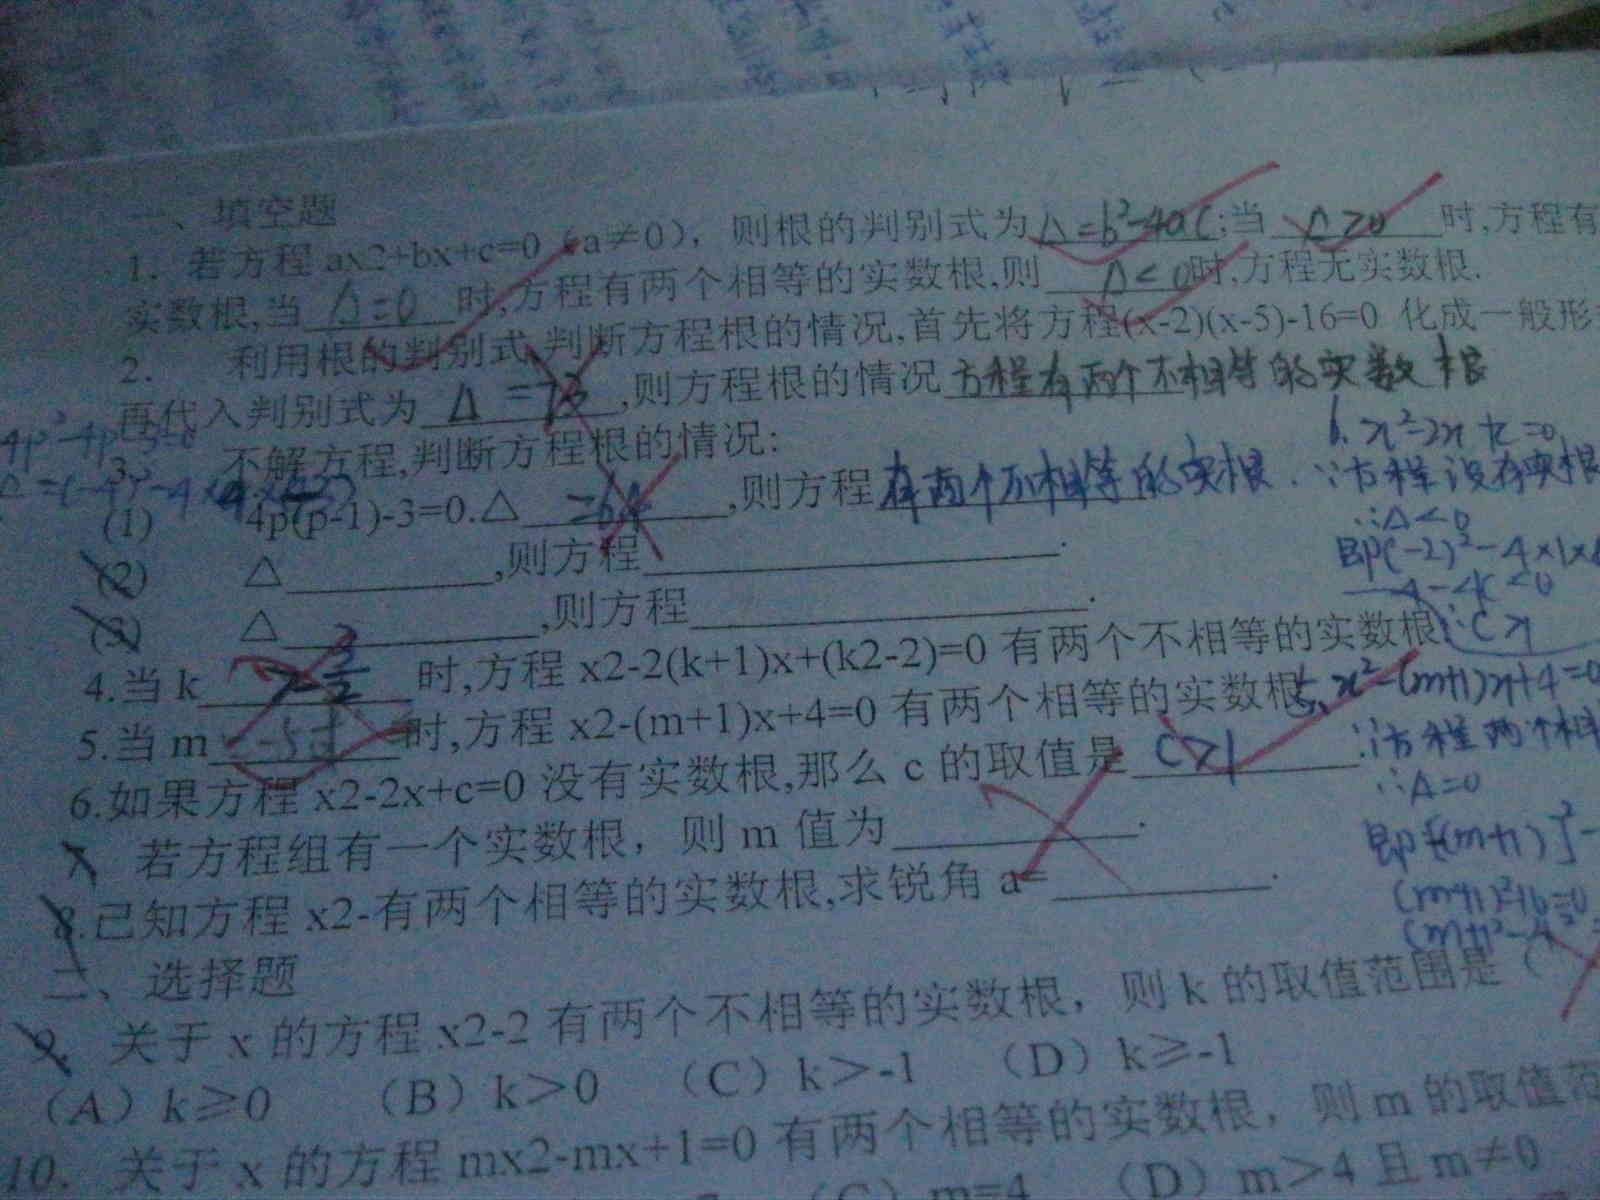 一、填空题
1. 若方程 ax2+bx+c=0（a≠0），则根的判别式为 △=b²-4ac;当 △>0 时,方程有
实数根,当 △=0 时,方程有两个相等的实数根,则 △<0 时,方程无实数根.
2. 利用根的判别式,判断方程根的情况,首先将方程(x-2)(x-5)-16=0 化成一般形
再代入判别式为 △=73 ,则方程根的情况 方程有两个不相等的实数根
3. 不解方程,判断方程根的情况:
(1) 4p(p-1)-3=0.△ =64 ,则方程 有两个不相等的实根.
(2) △ ,则方程 .
(3) △ ,则方程 .
4.当 k >-3/2 时,方程 x2-2(k+1)x+(k2-2)=0 有两个不相等的实数根
5.当 m 时,方程 x2-(m+1)x+4=0 有两个相等的实数根
6.如果方程 x2-2x+c=0 没有实数根,那么 c 的取值是 c>1 .
7 若方程组有一个实数根，则 m 值为 .
8.己知方程 x2-有两个相等的实数根,求锐角 a= .
二、选择题
9. 关于 x 的方程 x2-2 有两个不相等的实数根，则 k 的取值范围是（
（A）k≥0 （B）k>0 （C）k>-1 （D）k≥-1
10. 关于 x 的方程 mx2-mx+1=0 有两个相等的实数根，则 m 的取值范
（C）m=4 （D）m>4 且 m≠0
∵方程没有实根
∴△<0
即(-2)²-4×1×
4-4c<0
∴c>1
5、x²-(m+1)x+4=0
∵方程两个相
∴△=0
即[-(m+1)]²-